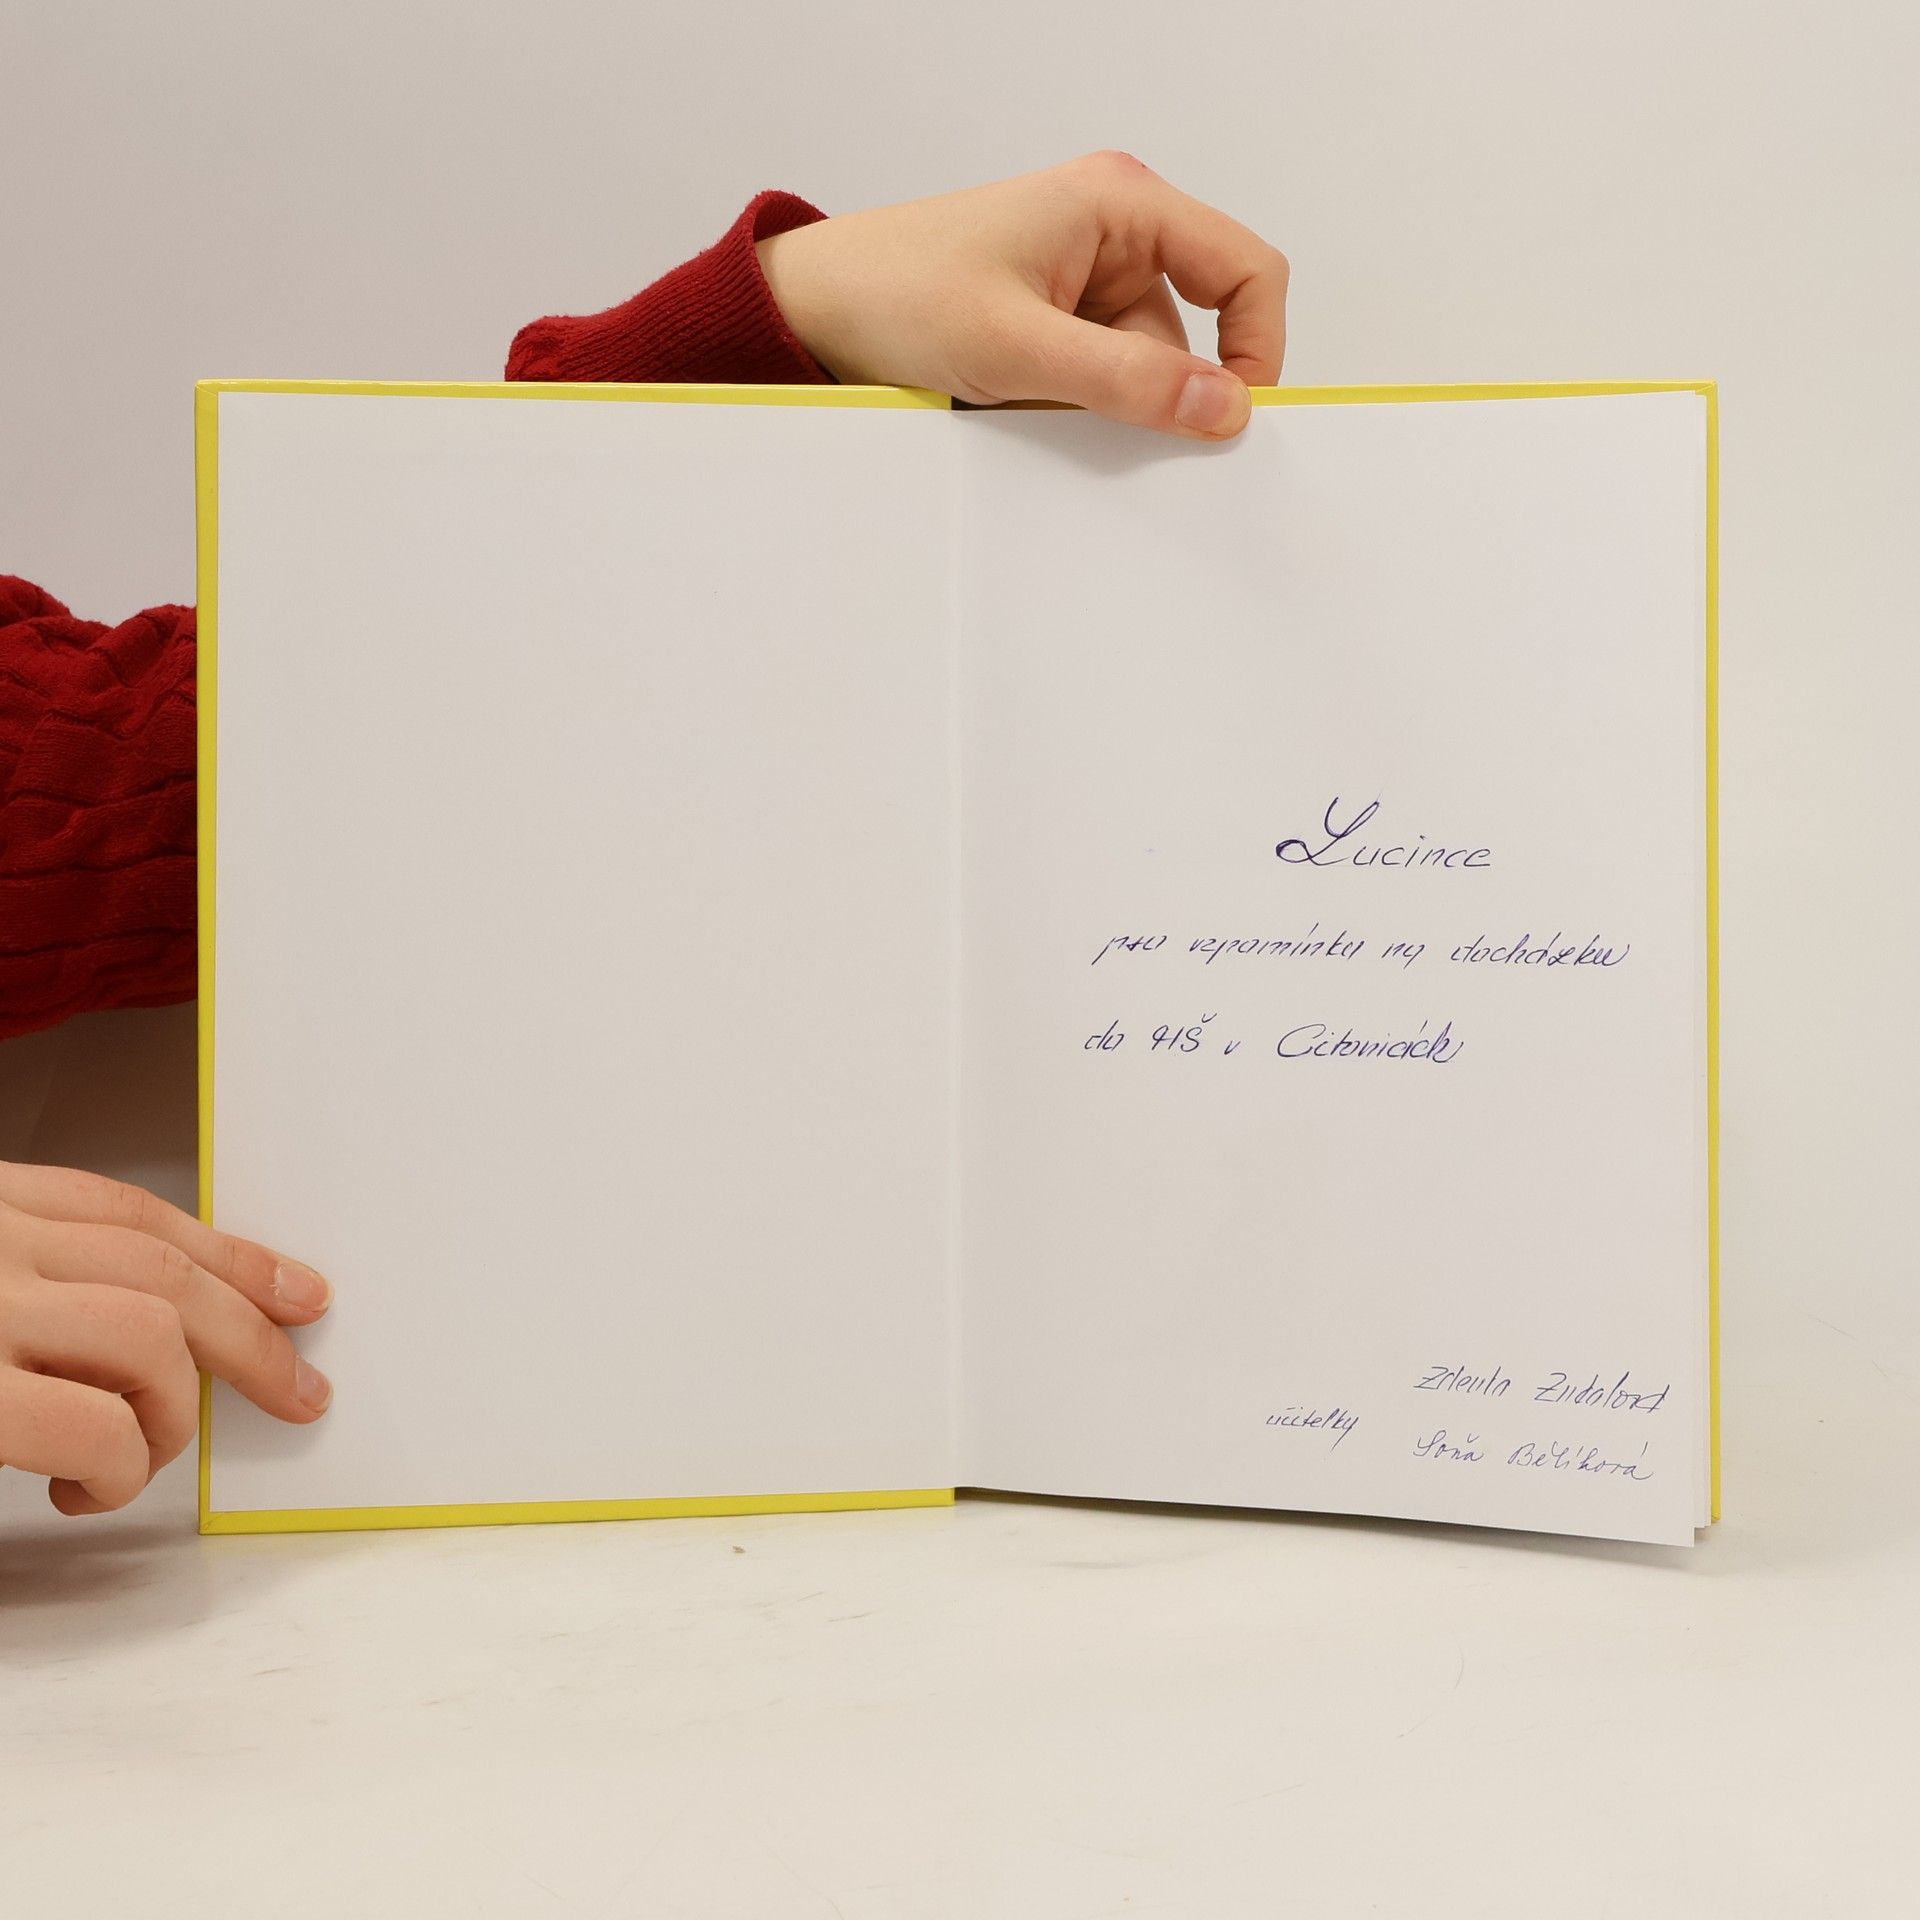 Lucince
pro vzpomínku na docházku
do MŠ v Citonicích
Zdeňka
učitelky
Soňa Bělíková